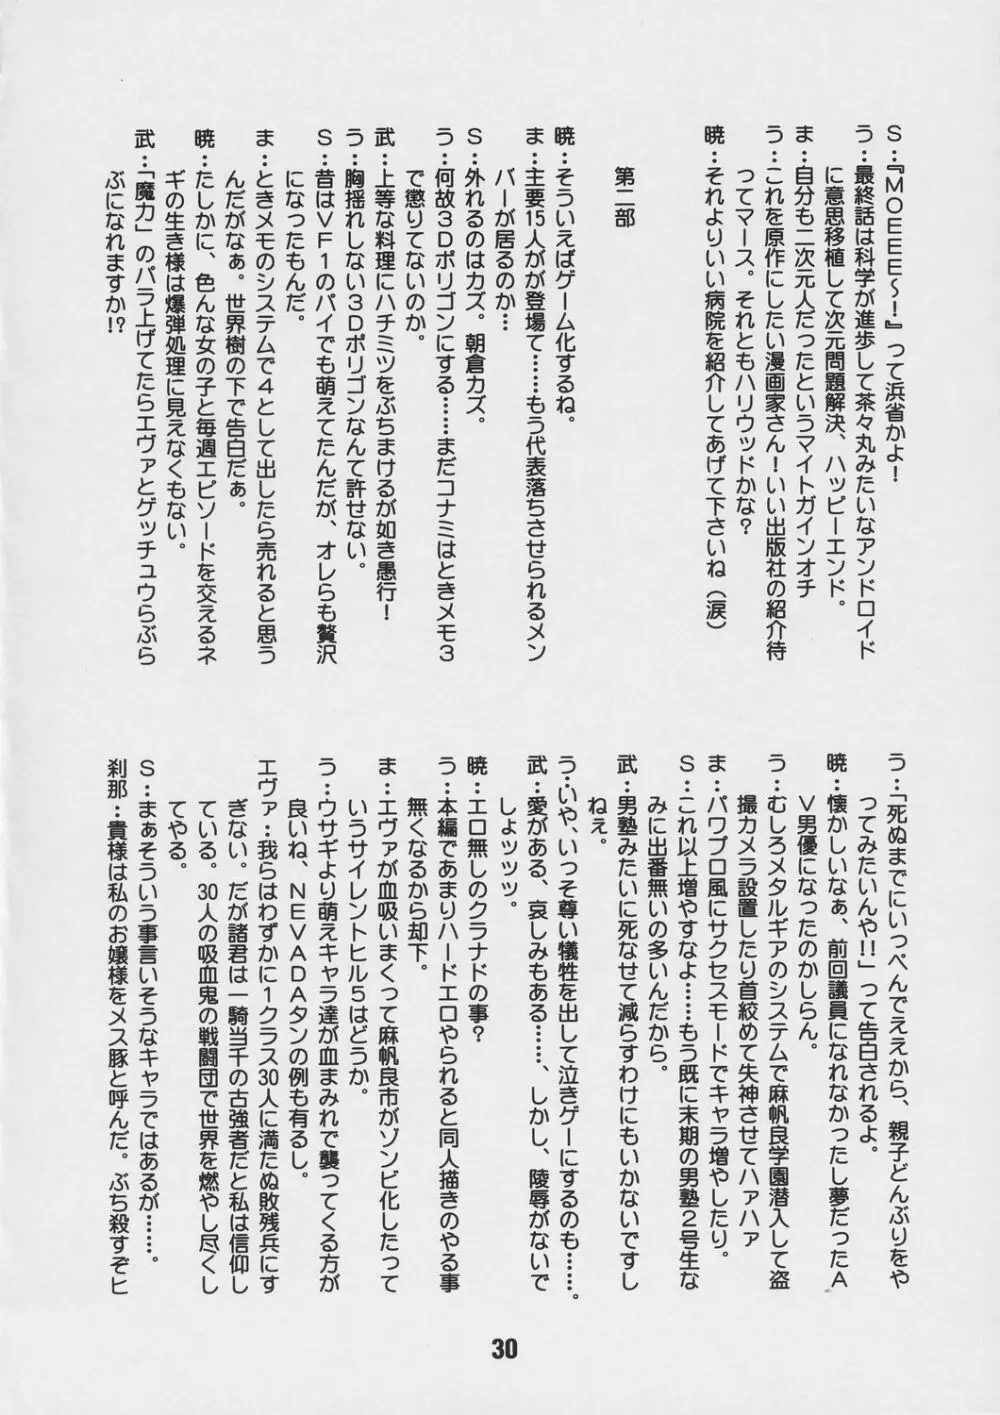 S：『MOEEE～！』って浜省かよ！
う：最終話は科学が進歩して茶々丸みたいなアンドロイド
に意思移植して次元問題解決、ハッピーエンド。
ま：自分も二次元人だったというマイトガインオチ
う：これを原作にしたい漫画家さん！いい出版社の紹介待
ってマース。それともハリウッドかな？
暁：それよりいい病院を紹介してあげて下さいね（涙）
第二部
暁：そういえばゲーム化するね。
ま：主要15人がが登場て……もう代表落ちさせられるメン
バーが居るのか…
S：外れるのはカズ。朝倉カズ。
う：何故3Dポリゴンにする……まだコナミはときメモ3
で懲りてないのか。
武：上等な料理にハチミツをぶちまけるが如き愚行！
う：胸揺れしない3Dポリゴンなんて許せない。
S：昔はVF1のパイでも萌えてたんだが、オレらも贅沢
になったもんだ。
ま：ときメモのシステムで4として出したら売れると思う
んだがなぁ。世界樹の下で告白だぁ。
暁：たしかに、色んな女の子と毎週エピソードを交えるネ
ギの生き様は爆弾処理に見えなくもない。
武：「魔力」のパラ上げてたらエヴァとゲッチュウらぶら
ぶになれますか!?
う：「死ぬまでにいっぺんでええから、親子どんぶりをや
ってみたいんや!!」って告白されるよ。
暁：懐かしいなぁ、前回議員になれなかったし夢だったA
V男優になったのかしらん。
う：むしろメタルギアのシステムで麻帆良学園潜入して盗
撮カメラ設置したり首絞めて失神させてハァハァ
ま：パワプロ風にサクセスモードでキャラ増やしたり。
S：これ以上増やすなよ……もう既に末期の男塾2号生な
みに出番無いの多いんだから。
武：男塾みたいに死なせて減らすわけにもいかないですし
ねえ。
う：いや、いっそ尊い犠牲を出して泣きゲーにするのも……。
武：愛がある、哀しみもある……、しかし、陵辱がないで
しょッッッ。
暁：エロ無しのクラナドの事？
う：本編であまりハードエロやられると同人描きのやる事
無くなるから却下。
ま：エヴァが血吸いまくって麻帆良市がゾンビ化したって
いうサイレントヒル5はどうか。
う：ウサギより萌えキャラ達が血まみれで襲ってくる方が
良いね、NEVADAタンの例も有るし。
エヴァ：我らはわずかに1クラス30人に満たぬ敗残兵にす
ぎない。だが諸君は一騎当千の古強者だと私は信仰し
ている。30人の吸血鬼の戦闘団で世界を燃やし尽くし
てやる。
S：まぁそういう事言いそうなキャラではあるが……。
刹那：貴様は私のお嬢様をメス豚と呼んだ。ぶち殺すぞヒ
30